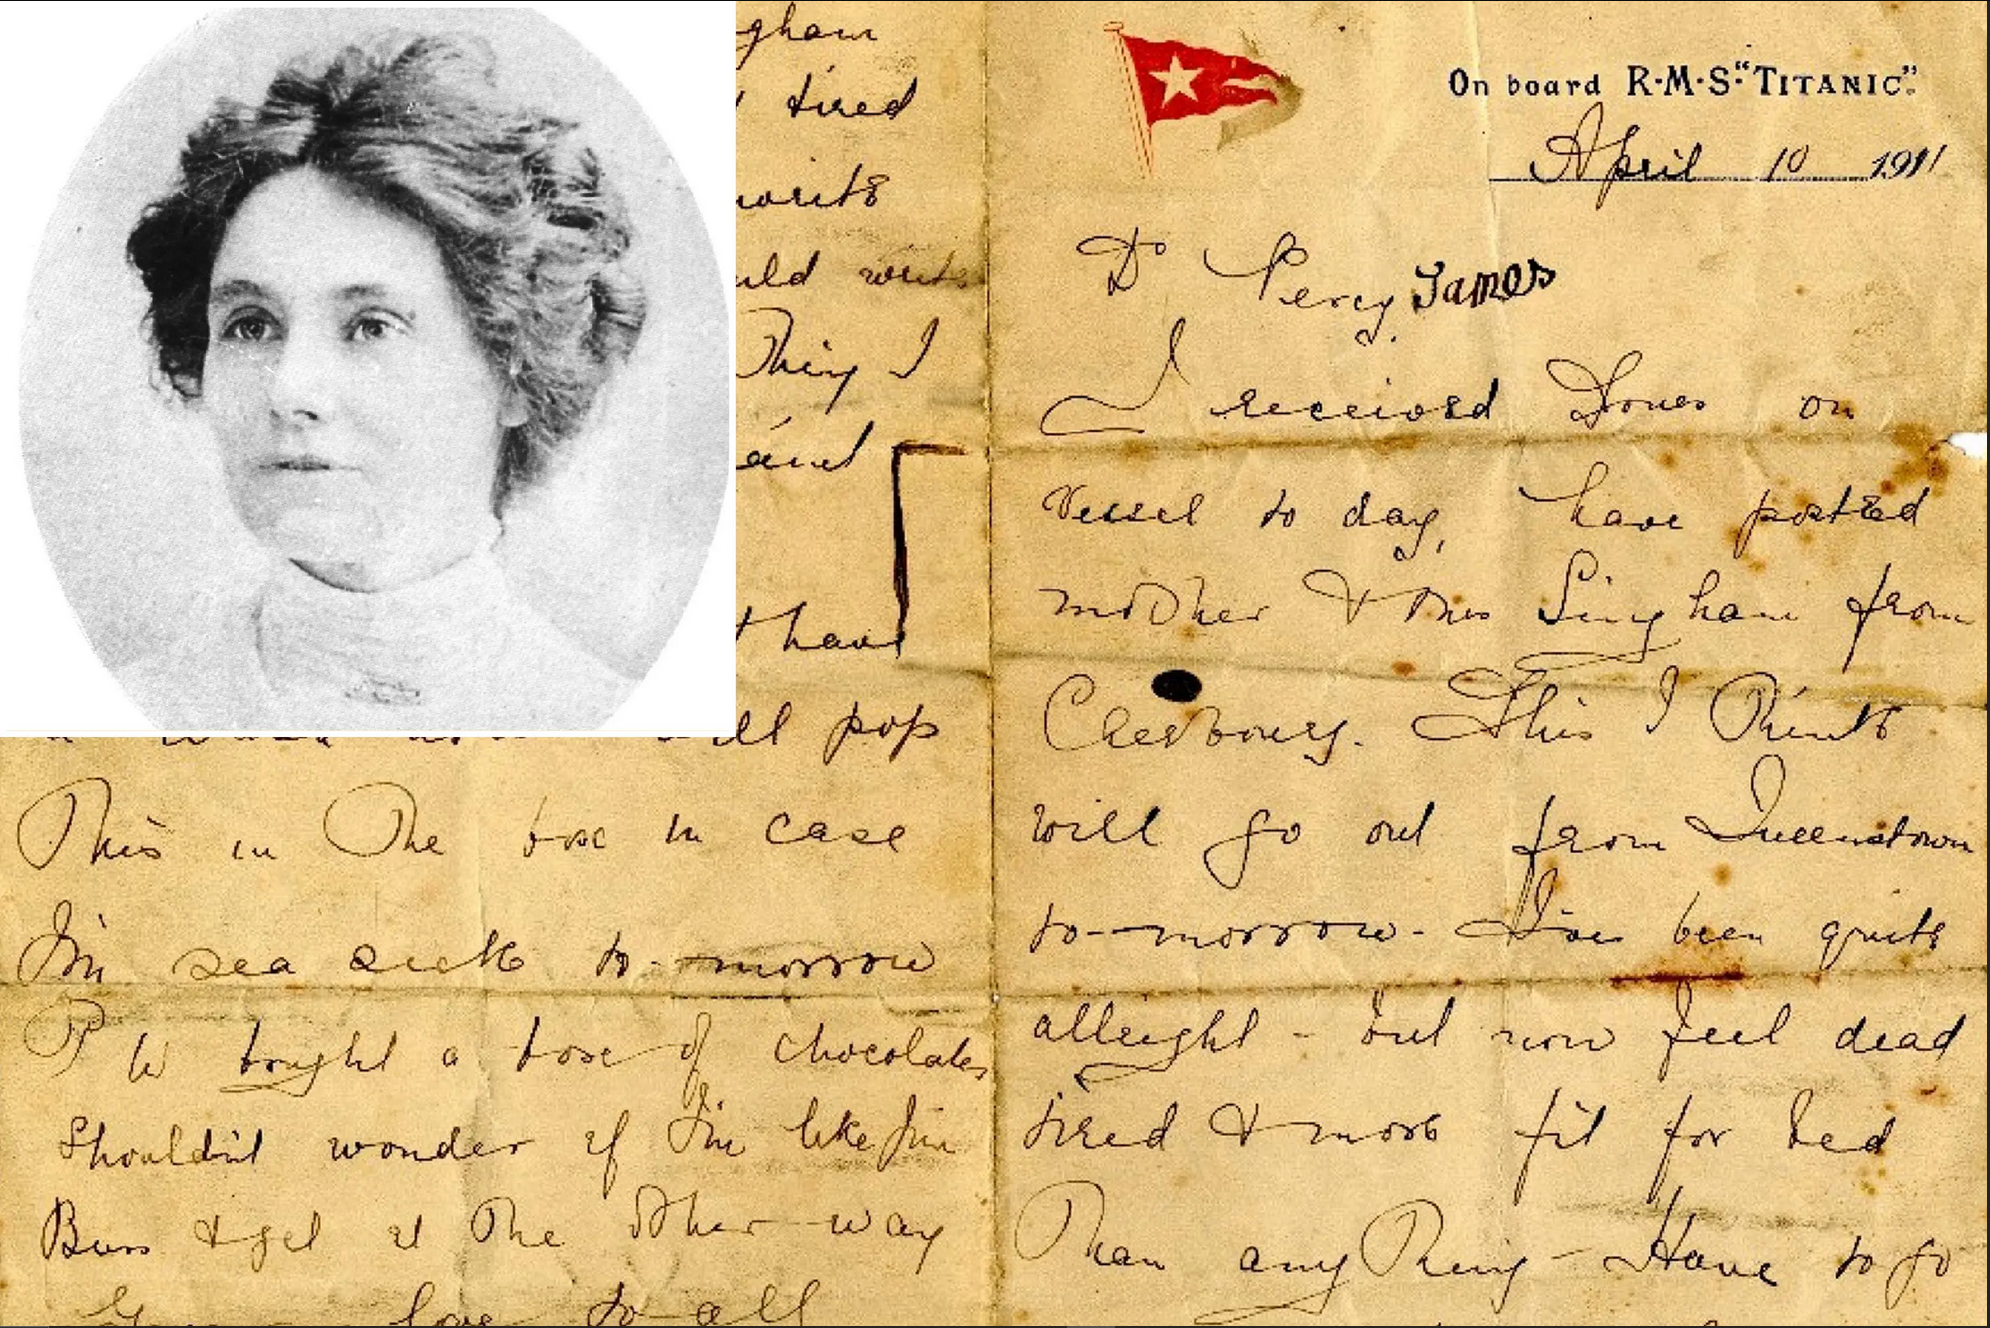 On board R·M·S· "TITANIC".
April 10 1911
Dr Percy James
I received yours on
vessel to day, have posted
mother & Mrs Bingham from
Cherbourg. This I think
will go out from Queenstown
to-morrow. I've been quite
allright - but now feel dead
tired & more fit for bed
than anything - Have to go
gham
tired
write
write
thing I
and
have
pop
This in the box in case
I'm sea sick to-morrow
P W bought a box of chocolates
Shouldn't wonder if I'm like Jim
& get it the other way
love to all